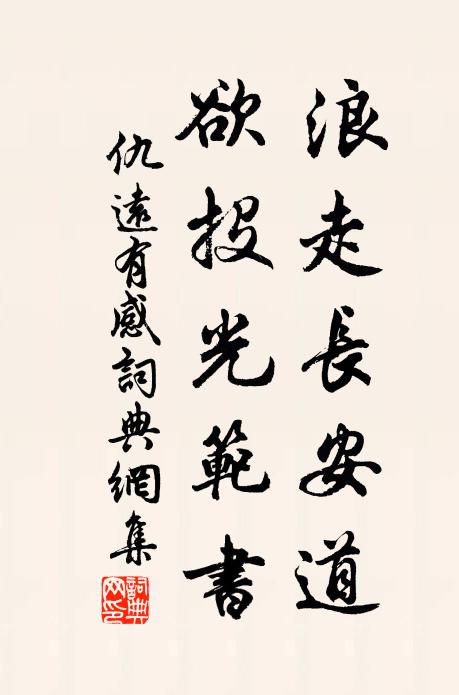 浪走長安道
欲投光範書
仇遠有感詞典網集
詞典网印